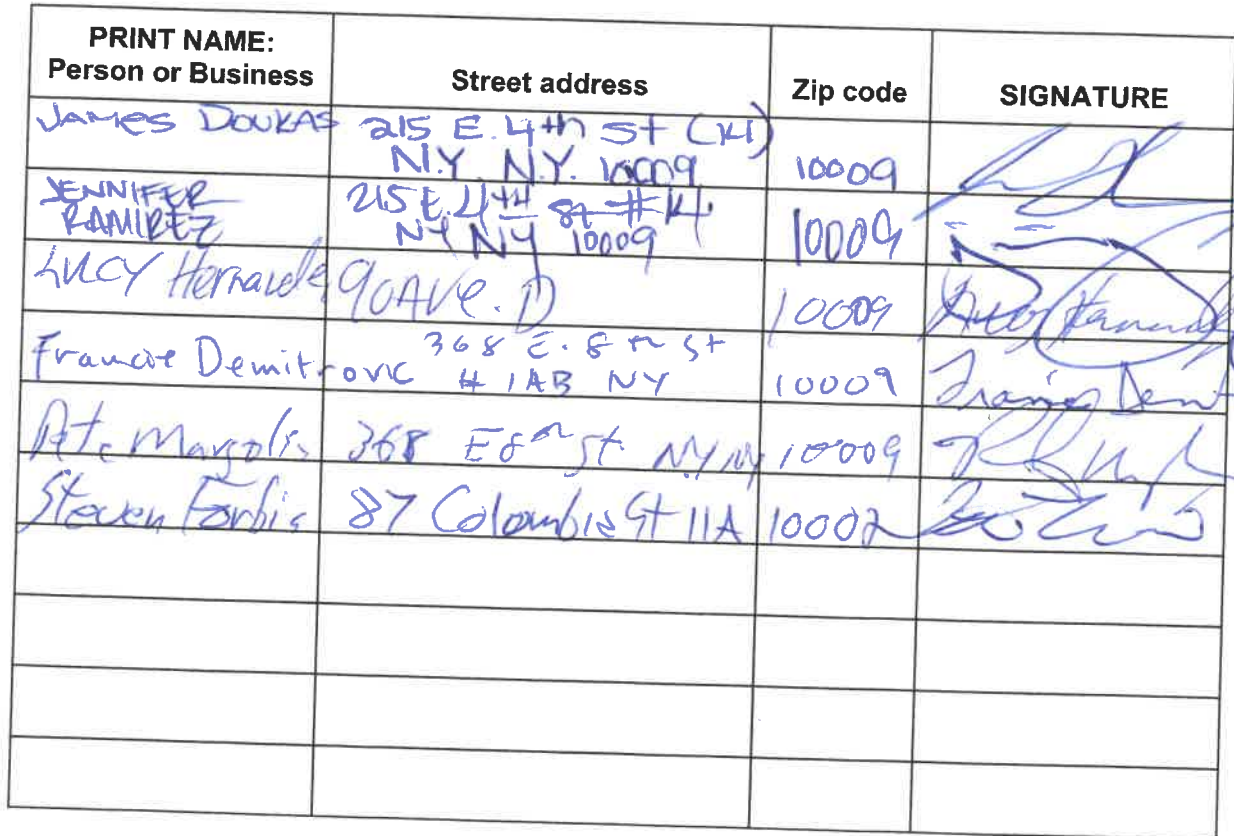 PRINT NAME:
Person or Business
Street address
Zip code
SIGNATURE
JAMES DOUKAS
215 E. 4th St (K1)
N.Y. N.Y. 10009
10009
JENNIFER
RAMIREZ
215 E. 4TH St #
NY NY 10009
10009
LUCY Hernande
90 AVE. D
10009
Hernande
Demitrovic
368 E. 8th St
# 1AB NY
10009
Pete Margolis
368 E 8th St. NY NY
10009
Steven Forbis
87 Colombia St 11A
10002